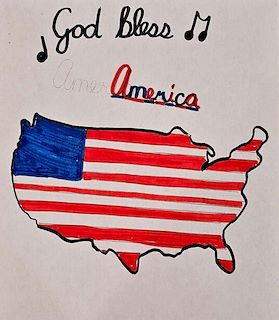 God Bless
Amer America